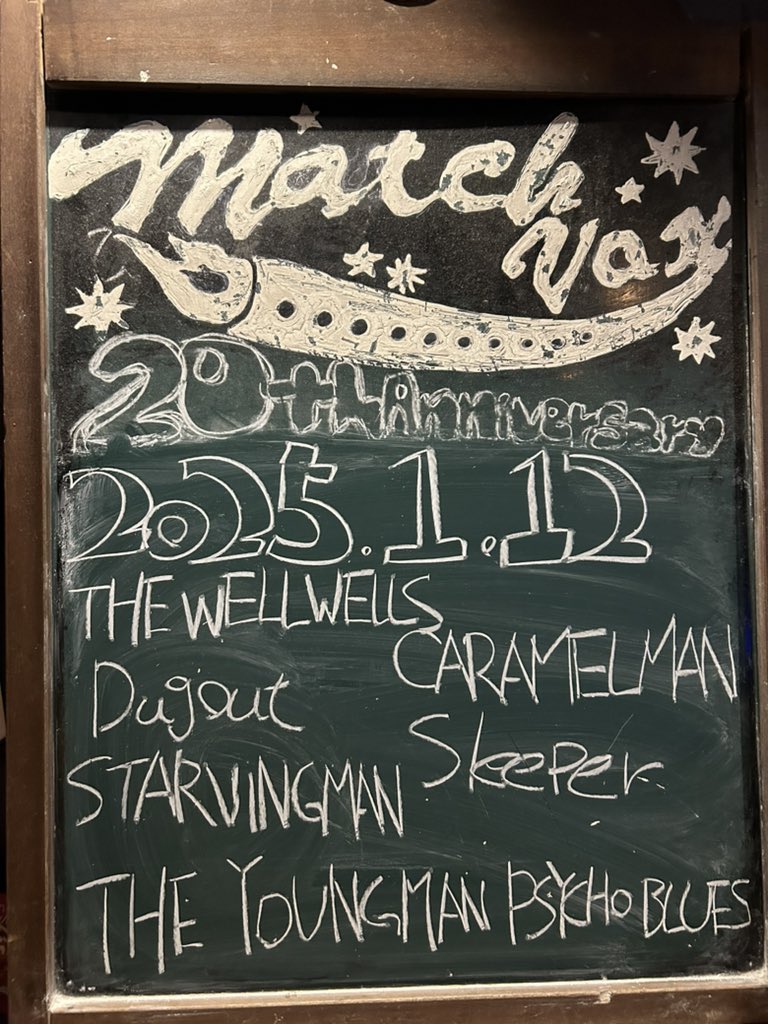 Match
Vox
20th Anniversary
2025.1.12
THE WELLWELLS
CARAMELMAN
Dugout
Sleeper
STARVINGMAN
THE YOUNGMAN PSYCHO BLUES